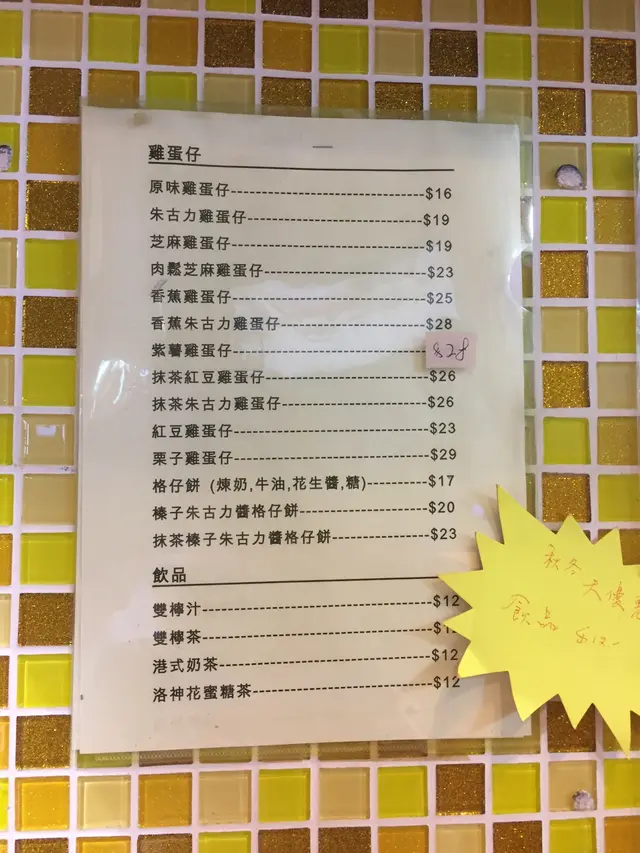 雞蛋仔
原味雞蛋仔----------------------------$16
朱古力雞蛋仔--------------------------$19
芝麻雞蛋仔----------------------------$19
肉鬆芝麻雞蛋仔------------------------$23
香蕉雞蛋仔----------------------------$25
香蕉朱古力雞蛋仔----------------------$28
紫薯雞蛋仔---------------------------- $28
抹茶紅豆雞蛋仔------------------------$26
抹茶朱古力雞蛋仔----------------------$26
紅豆雞蛋仔----------------------------$23
栗子雞蛋仔----------------------------$29
格仔餅 (煉奶,牛油,花生醬,糖)---------$17
榛子朱古力醬格仔餅-------------------$20
抹茶榛子朱古力醬格仔餅---------------$23
飲品
雙檸汁---------------------------------$12
雙檸茶---------------------------------
港式奶茶-------------------------------$12
洛神花蜜糖茶--------------------------$12
秋冬
大優
飲品 $12.-